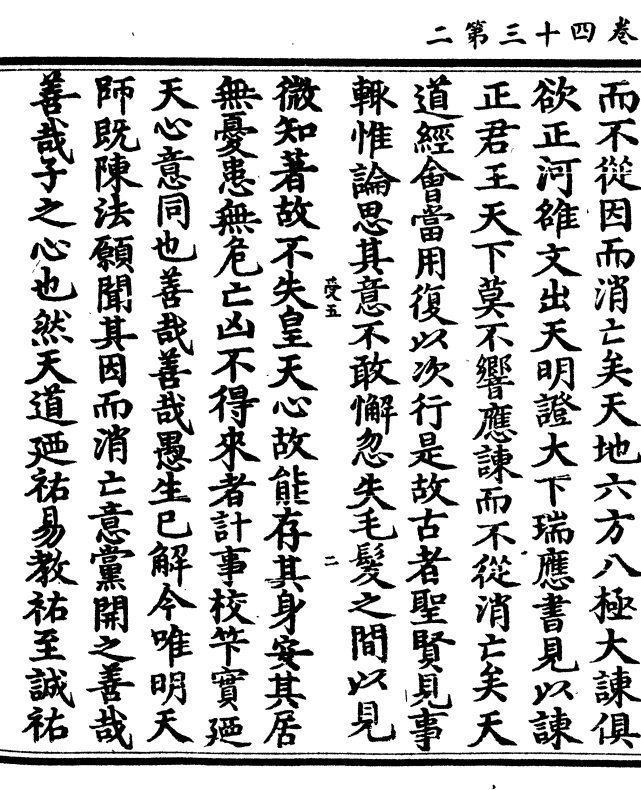 卷四十三第二
而不從因而消亡矣天地六方八極大諫俱
欲正河雒文出天明證大下瑞應書見以諫
正君王天下莫不響應諫而不從消亡矣天
道經會當用復以次行是故古者聖賢見事
輙惟論思其意不敢懈忽失毛髮之間以見
受五
二
微知著故不失皇天心故能存其身安其居
無憂患無危亡凶不得來者計事校筭實廼
天心意同也善哉善哉愚生已解今唯明天
師既陳法願聞其因而消亡意黨開之善哉
善哉子之心也然天道廼祐易教祐至誠祐